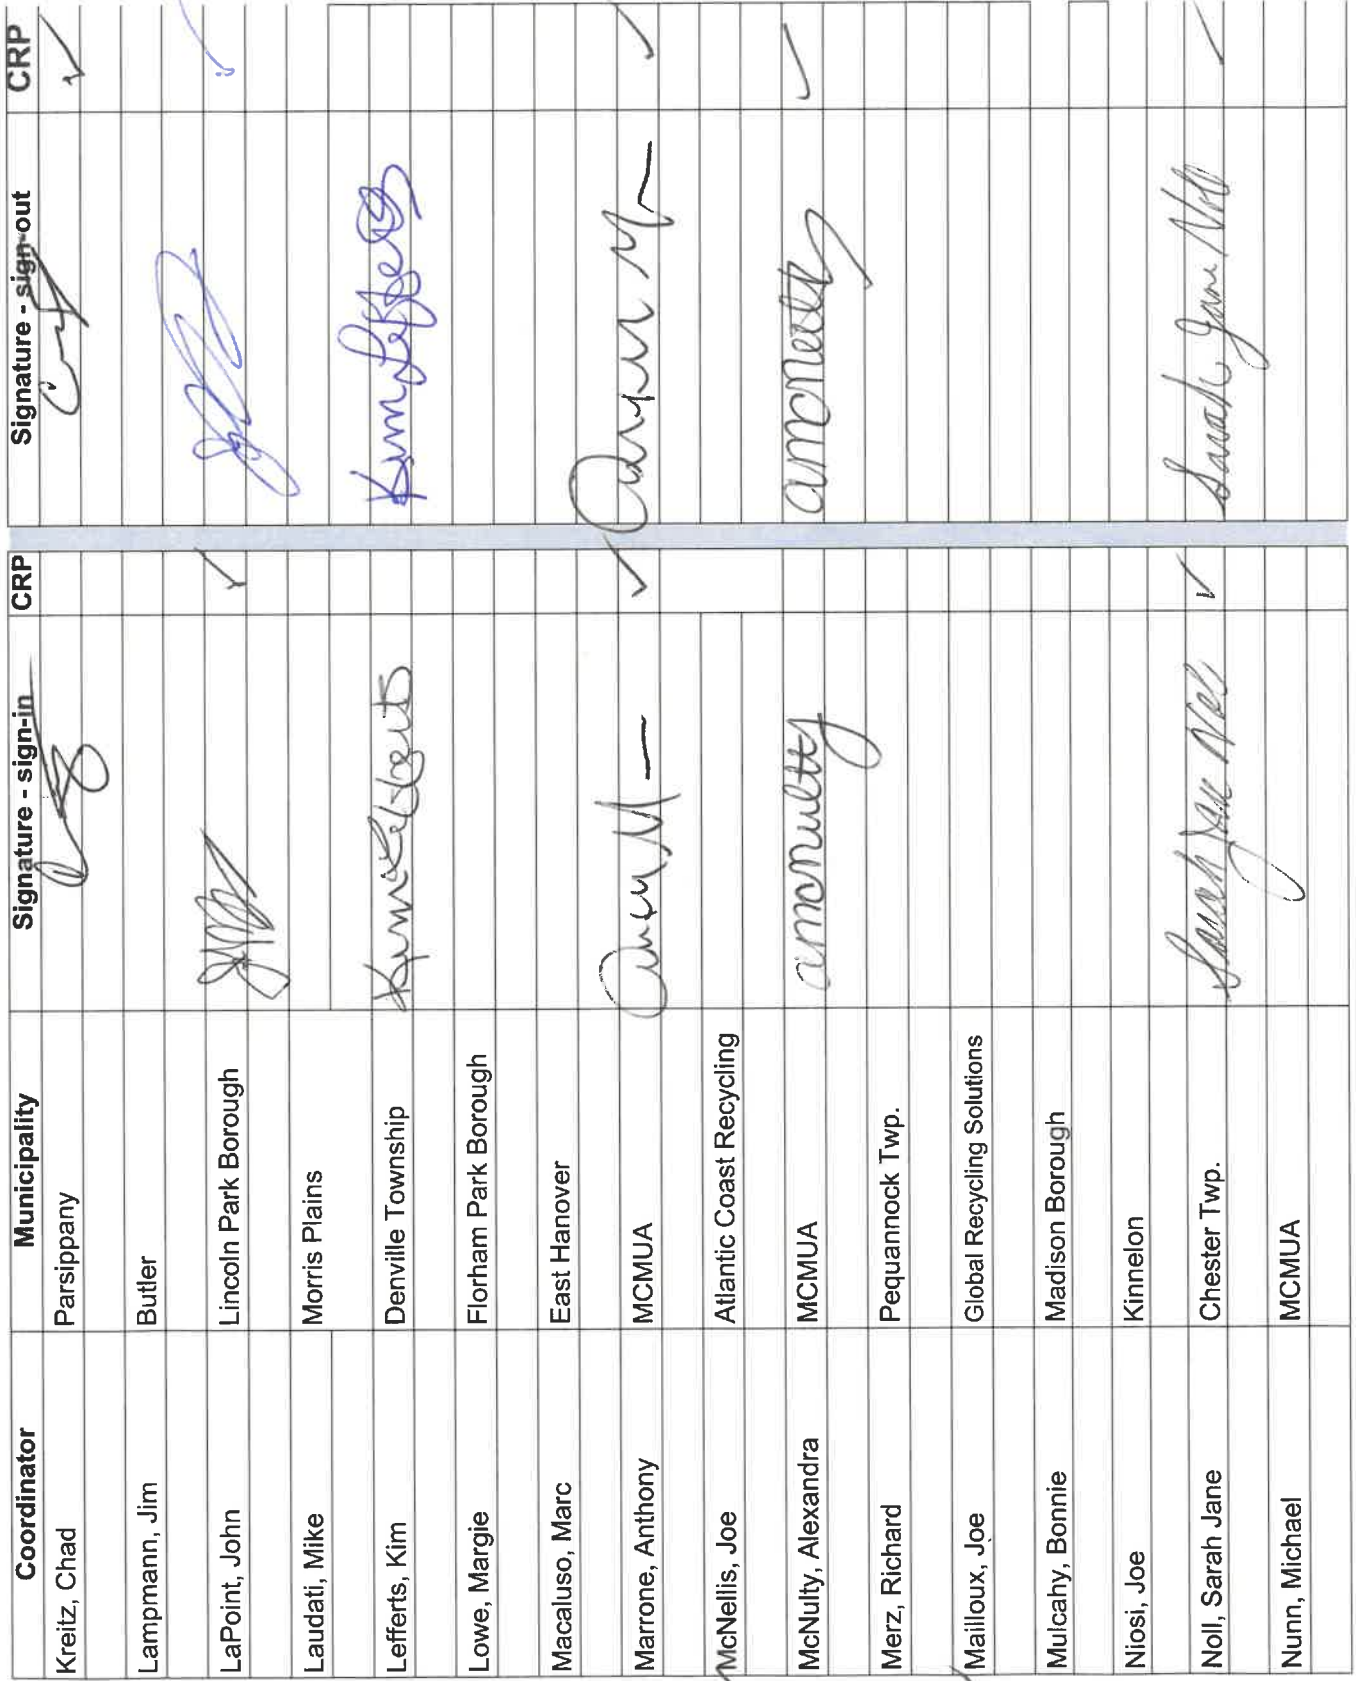 Coordinator Municipality Signature - sign-in CRP Signature - sign-out CRP
Kreitz, Chad Parsippany ✓
Lampmann, Jim Butler
LaPoint, John Lincoln Park Borough ✓ ✓
Laudati, Mike Morris Plains
Lefferts, Kim Denville Township Kim Lefferts Kim Lefferts
Lowe, Margie Florham Park Borough
Macaluso, Marc East Hanover
Marrone, Anthony MCMUA ✓ ✓
McNellis, Joe Atlantic Coast Recycling
McNulty, Alexandra MCMUA amcnulty amcnulty ✓
Merz, Richard Pequannock Twp.
Mailloux, Joe Global Recycling Solutions
Mulcahy, Bonnie Madison Borough
Niosi, Joe Kinnelon
Noll, Sarah Jane Chester Twp. Sarah Jane Noll ✓ Sarah Jane Noll ✓
Nunn, Michael MCMUA